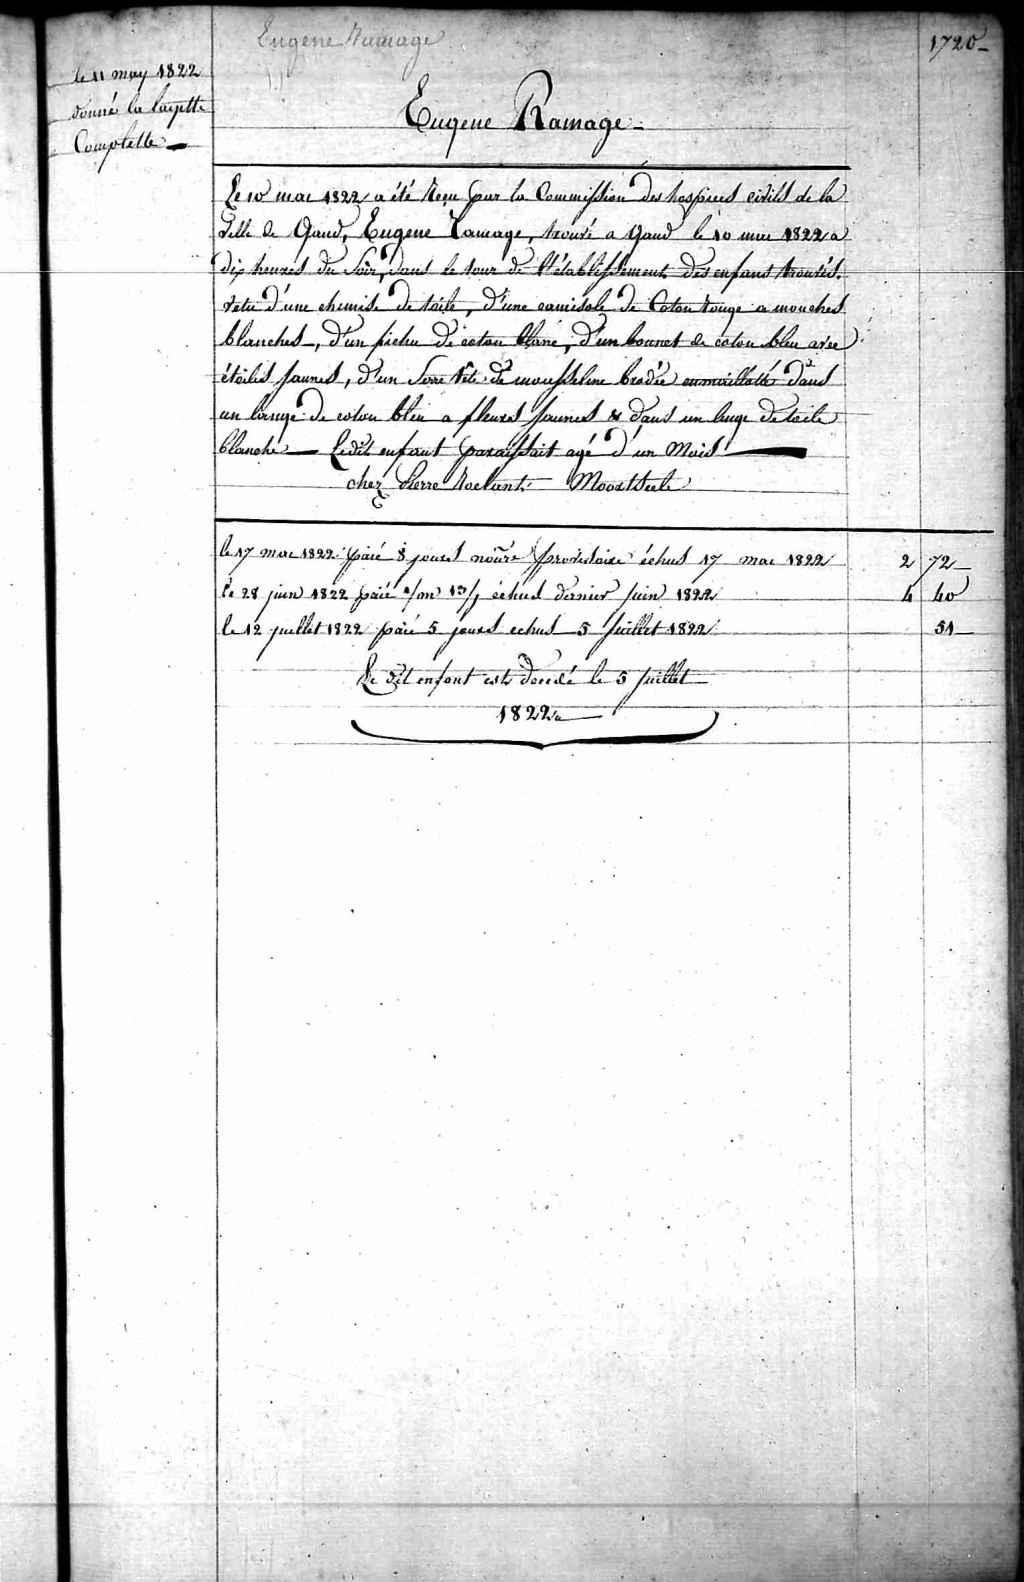 Eugene Ramage
1720
le 11 may 1822
donné la layette
Complette
Eugene Ramage
Le 10 mai 1822 a été Reçu par la Commission des hospices civils de la
Ville de Gand, Eugene Ramage, trouvé a Gand le 10 mai 1822 a
dix heures du Soir, dans le tour de l'établissement des enfans trouvés.
vetu d'une chemise de toile, d'une camisole de Coton Rouge a mouches
blanches, d'un fichu de coton blanc, d'un bonnet de coton bleu avec
étoiles jaunes, d'un Serre tête de mousseline brodée enmaillotté dans
un lange de coton bleu a fleurs jaunes & dans un lange de toile
blanche Ledit enfant paraissait agé d'un Mois
chez Pierre Roelant
le 17 mai 1822 paié 8 jours nourre provisoire échus 17 mai 1822 2 72
le 28 juin 1822 paié échus dernier juin 1822 4 40
le 12 juillet 1822 paié 5 jours echus 5 juillet 1822 51
Le dit enfant est decedé le 5 juillet
1822